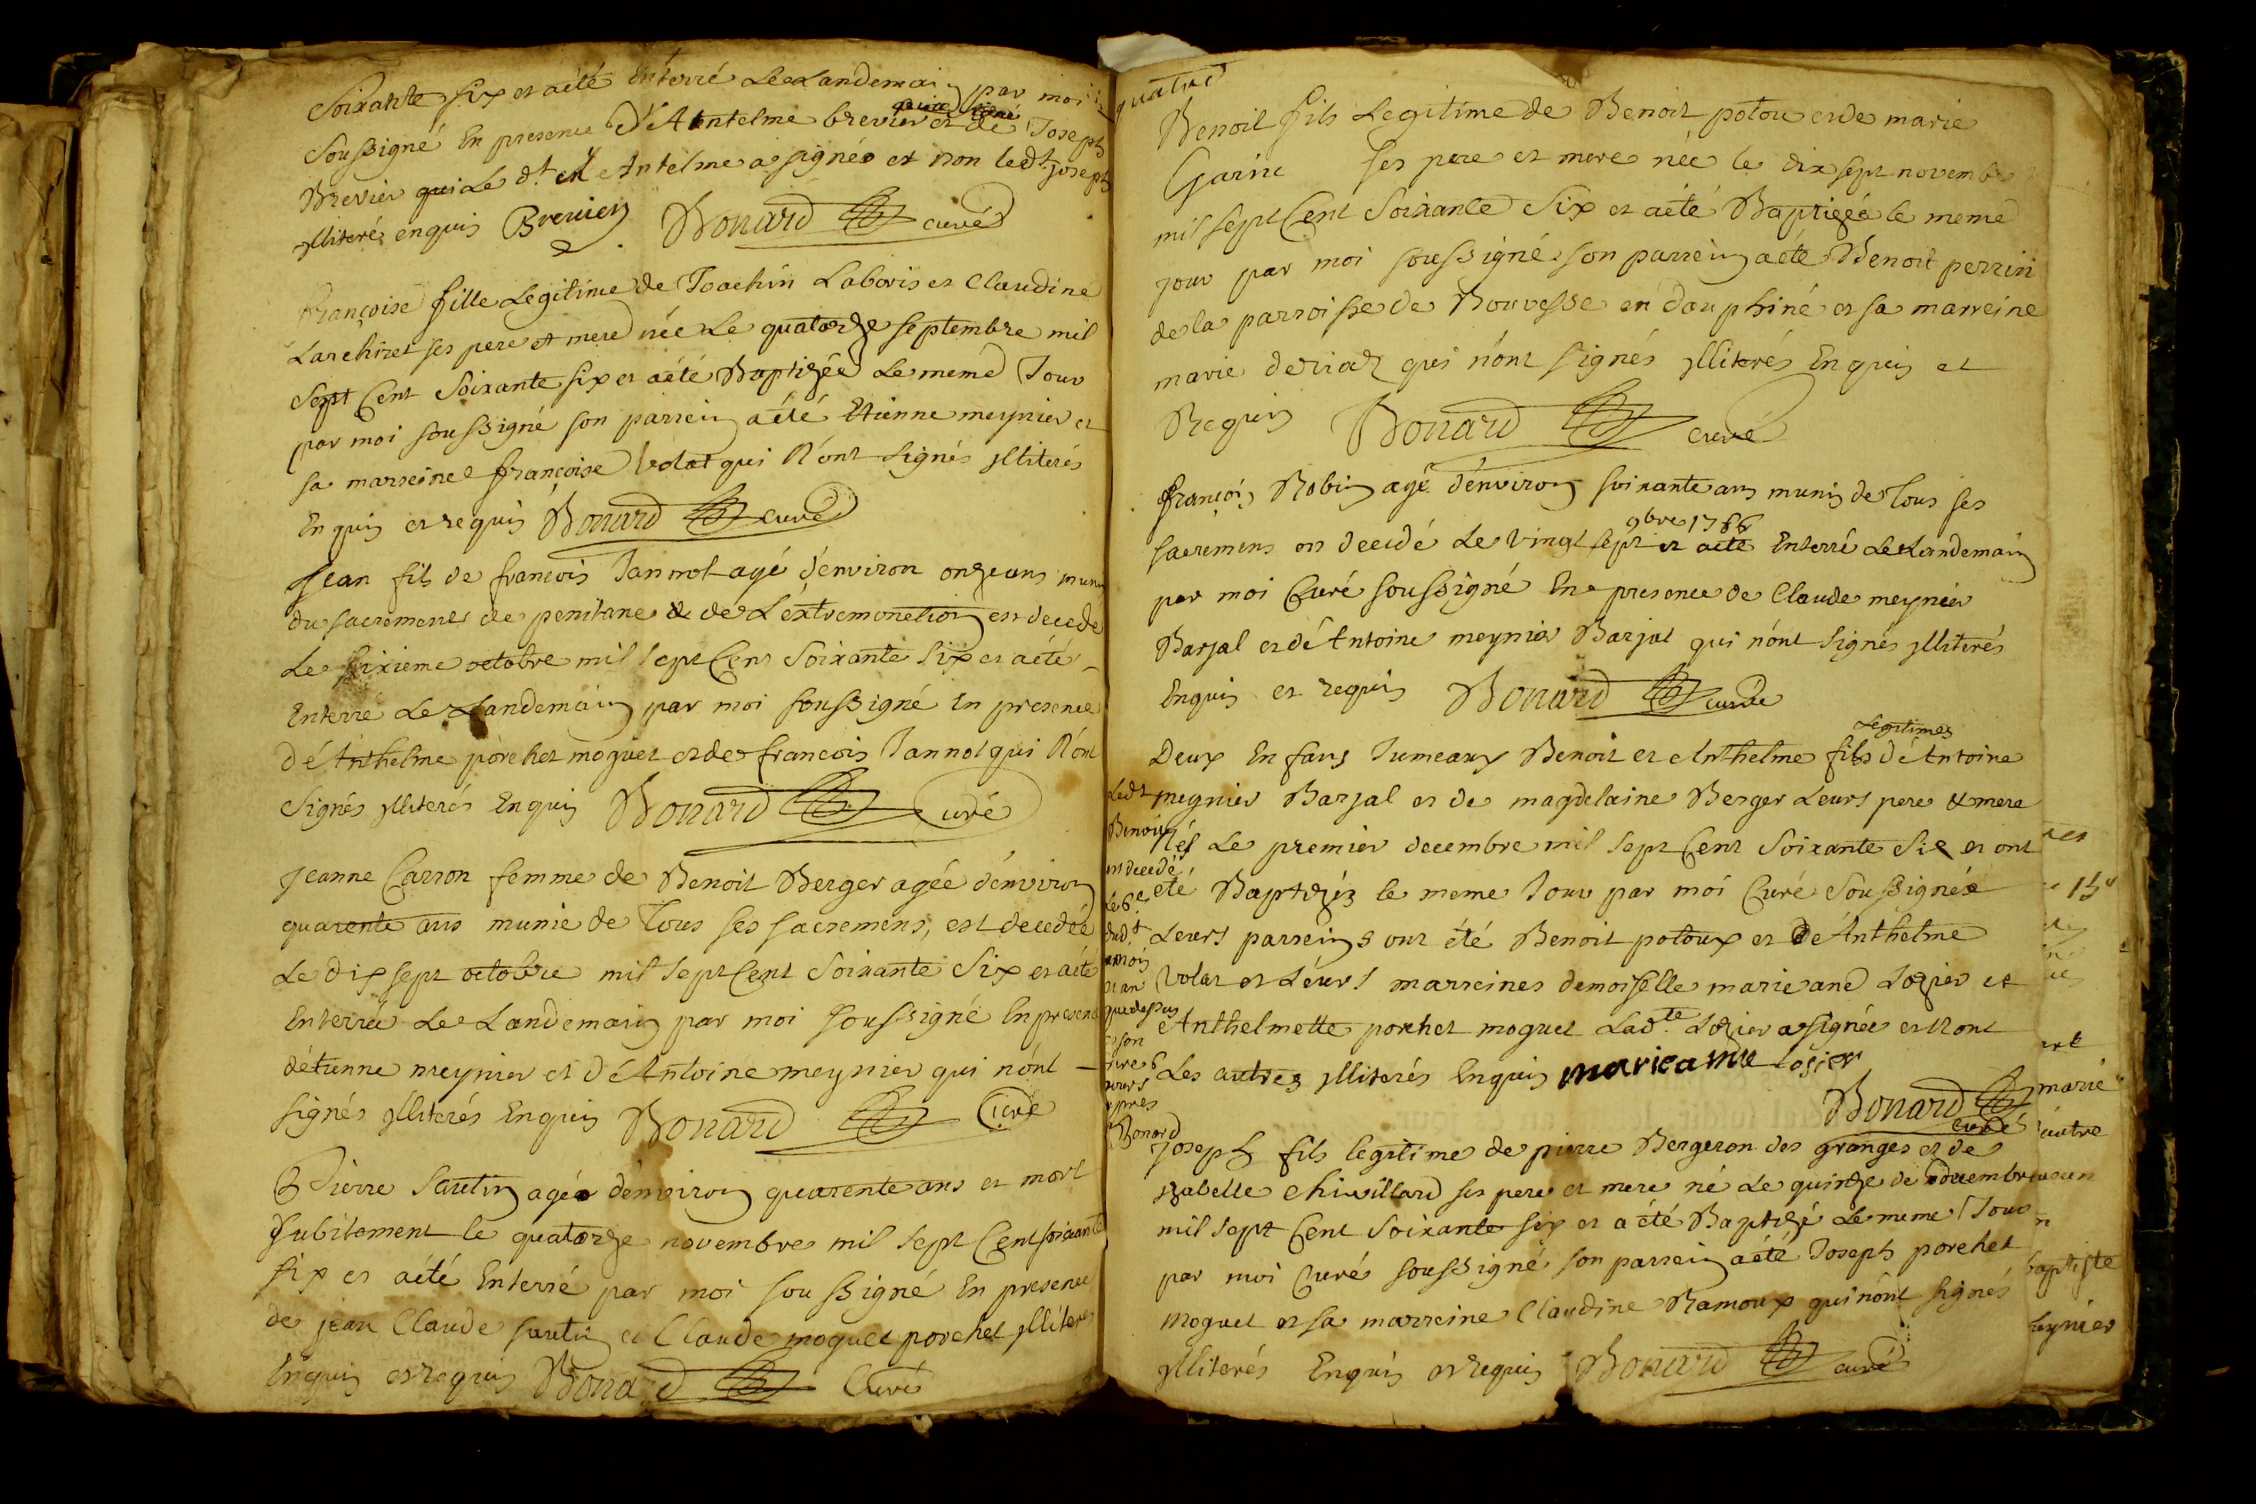 Soixante six et aété Enterré Le Landemain par moi
soussigné En presence D'Anntelme brevier et de Joseph
Brevier qui Le dt Antelme a signé et non ledt joseph
yllitéré enquis Brevier Bonard curé
françoise fille Legitime de Joachin Laboris et Claudine
Larchiret ses pere et mere née Le quatorze septembre mil
Sept Cent Soixante six et aété Baptizée Le meme Jour
par moi soussigné son parrein aété Etienne meynier et
sa marreine françoise Volat qui N'ont signés ylliterés
Enquis et requis Bonard curé
Jean fils de francois Jannot agé d'environ onze ans muni
du sacrement de penitance & de L'extremonction est decedé
Le sixieme octobre mil sept Cent Soixante Six et aété
Enterré Le Landemain par moi soussigné En presence
D'Anthelme porchet moguet et de francois Jannot qui N'ont
Signés ylliterés Enquis Bonard Curé
Jeanne Carron femme de Benoit Berger agée d'environ
quarente ans munie de Tous ses sacremens, est decedée
Le dix sept octobre mil sept Cent Soixante Six et aété
Enterrée Le Landemain par moi soussigné En presence
d'étienne meynier et D'Antoine meynier qui n'ont
signés ylliterés Enquis Bonard Curé
Pierre Sautin agé d'environ quarente ans et mort
subitement le quatorze novembre mil sept Cent soixante
six et aété Enterré par moi soussigné En presence
de jean Claude sautin et Claude moguet porchet yllitere
Enquis et requis Bonard Curé
quatre
Benoit fils Legitime de Benoit potou et de marie
Garin ses pere et mere née le dix sept novembre
mil sept Cent Soixante Six et aété Baptizée le meme
jour par moi soussigné son parrein aété Benoit perrin
de la parroisse de Bouvesse en dauphiné et sa marreine
marie deriaz qui n'ont signés ylliterés Enquis et
Requis Bonard curé
françois Robin agé d'environ soixante ans munis de Tous ses
9bre 1766
sacremens on decedé Le vingt sept et aété Enterré Le Landemain
par moi Curé soussigné En presence de Claude meynier
Barjal et d'Antoine meynier Barjat qui n'ont signés ylliterés
Enquis et requis Bonard curé
Legitimes
Deux Enfans Jumeaux Benoit et Anthelme fils d'Antoine
meynier Barjal et de magdelaine Berger Leurs pere & mere
Nés Le premier decembre mil sept Cent Soixante Six et ont
été Baptizés le meme Jour par moi Curé Soussigné
Leurs parreins ont été Benoit potoux et D'Anthelme
Volat et Leurs marreines demoiselle marie ane Lozier et
Anthelmette porchet moguet Ladte Lozier a signée et Non
Les autres ylliterés Enquis marie anne Losier
Bonard curé
Ledt
Benoit
est decedé
Le 6e
dudt
mois
et an
que dessus
Bonard
Joseph fils legitime de pierre Bergeron des granges et de
yzabelle chivillard ses pere et mere né Le quinze de
mil sept Cent Soixante six et a été Baptizé Le meme Jour
par moi Curé soussigné son parrein aété Joseph porchet
Moguet et sa marreine Claudine Ramoux qui n'ont signés
ylliterés Enquis et requis Bonard curé
marie
autre
baptiste